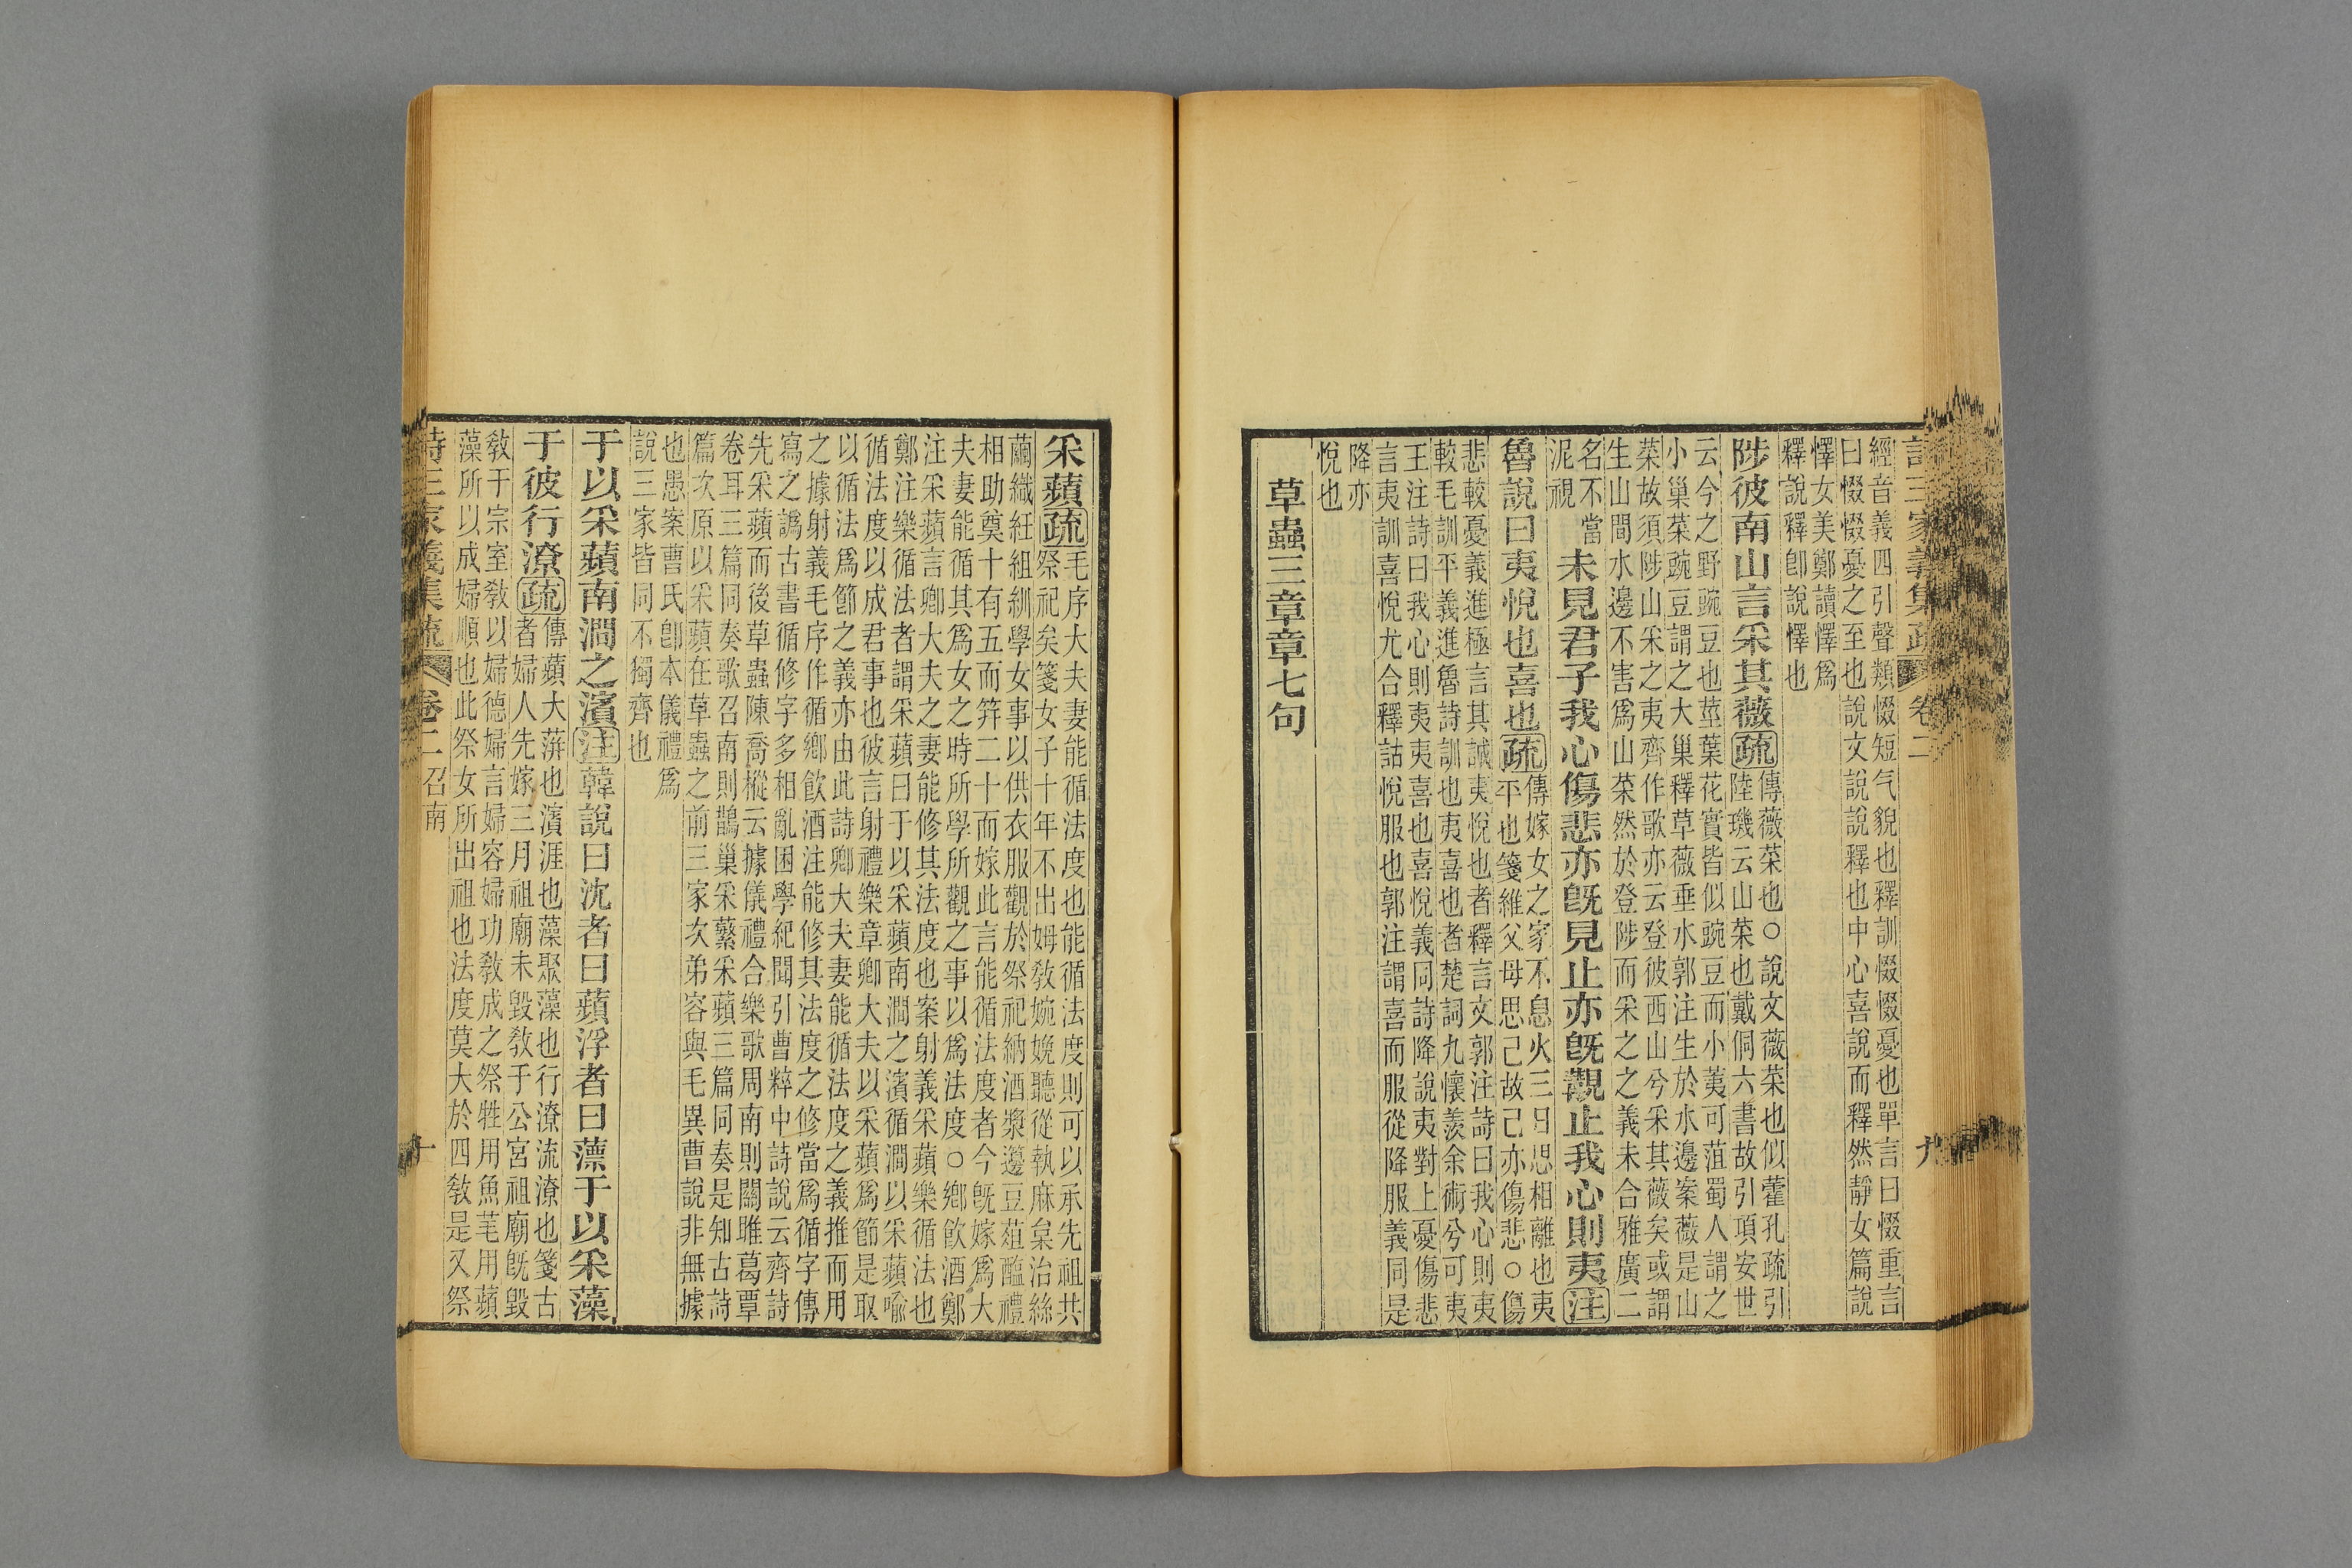 詩三家義集疏 卷二 九
經音義四引聲類惙短气貌也釋訓惙惙憂也單言曰惙重言
曰惙惙憂之至也說文說說釋也中心喜說而釋然靜女篇說
懌女美鄭讀懌爲
釋說釋卽說懌也
陟彼南山言采其薇疏
傳薇菜也○說文薇菜也似藿孔疏引
陸璣云山菜也戴侗六書故引項安世
云今之野豌豆也莖葉花實皆似豌豆而小荑可菹蜀人謂之
小巢菜豌豆謂之大巢釋草薇垂水郭注生於水邊案薇是山
菜故須陟山采之夷齊作歌亦云登彼西山兮采其薇矣或謂
生山間水邊不害爲山菜然於登陟而采之之義未合雅廣二
名不當
泥視
未見君子我心傷悲亦旣見止亦旣觀止我心則夷注
魯說曰夷悅也喜也疏
傳嫁女之家不息火三日思相離也夷
平也箋維父母思己故己亦傷悲○傷
悲較憂義進極言其誠夷悅也者釋言文郭注詩曰我心則夷
較毛訓平義進魯詩訓也夷喜也者楚詞九懷羨余術兮可夷
王注詩曰我心則夷夷喜也喜悅義同詩降說夷對上憂傷悲
言夷訓喜悅尤合釋詁悅服也郭注謂喜而服從降服義同是
降亦
悅也
草蟲三章章七句
采蘋疏
毛序大夫妻能循法度也能循法度則可以承先祖共
祭祀矣箋女子十年不出姆敎婉娩聽從執麻枲治絲
繭織紝組紃學女事以供衣服觀於祭祀納酒漿籩豆葅醢禮
相助奠十有五而笄二十而嫁此言能循法度者今旣嫁爲大
夫妻能循其爲女之時所學所觀之事以爲法度○鄉飮酒鄭
注采蘋言卿大夫之妻能修其法度也案射義采蘋樂循法也
鄭注樂循法者謂采蘋曰于以采蘋南澗之濱循澗以采蘋喩
循法度以成君事也彼言射禮樂章卿大夫以采蘋爲節是取
以循法爲節之義亦由此詩卿大夫妻能循法度之義推而用
之據射義毛序作循鄉飮酒注能修其法度之修當爲循字傳
寫之譌古書循修字多相亂困學紀聞引曹粹中詩說云齊詩
先采蘋而後草蟲陳喬樅云據儀禮合樂歌周南則關雎葛覃
卷耳三篇同奏歌召南則鵲巢采蘩采蘋三篇同奏是知古詩
篇次原以采蘋在草蟲之前三家次弟容與毛異曹說非無據
也愚案曹氏卽本儀禮爲
說三家皆同不獨齊也
于以采蘋南澗之濱注韓說曰沈者曰蘋浮者曰薸于以采藻
于彼行潦疏
傳蘋大蓱也濱涯也藻聚藻也行潦流潦也箋古
者婦人先嫁三月祖廟未毀敎于公宮祖廟旣毀
敎于宗室敎以婦德婦言婦容婦功敎成之祭牲用魚芼用蘋
藻所以成婦順也此祭女所出祖也法度莫大於四敎是又祭
詩三家義集疏 卷二召南 十